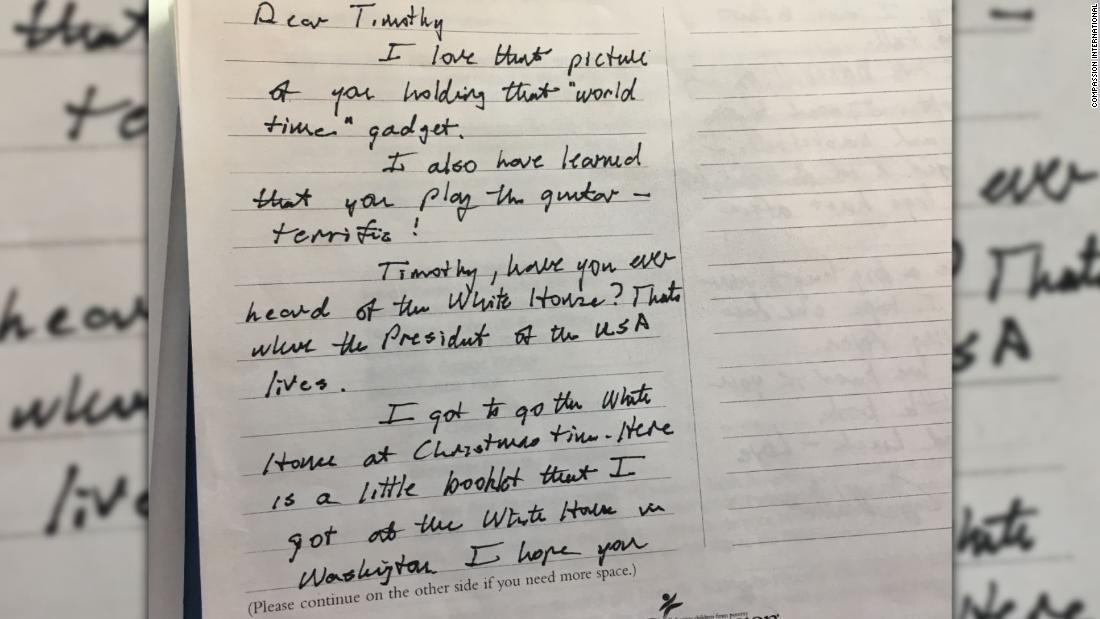 Dear Timothy
I love that picture
of you holding that "world
time" gadget.
I also have learned
that you play the guitar –
terrific!
Timothy, have you ever
heard of the White House? Thats
where the President of the USA
lives.
I got to go the White
House at Christmas time. Here
is a little booklet that I
got at the White House in
Washington I hope you
(Please continue on the other side if you need more space.)
COMPASSION INTERNATIONAL